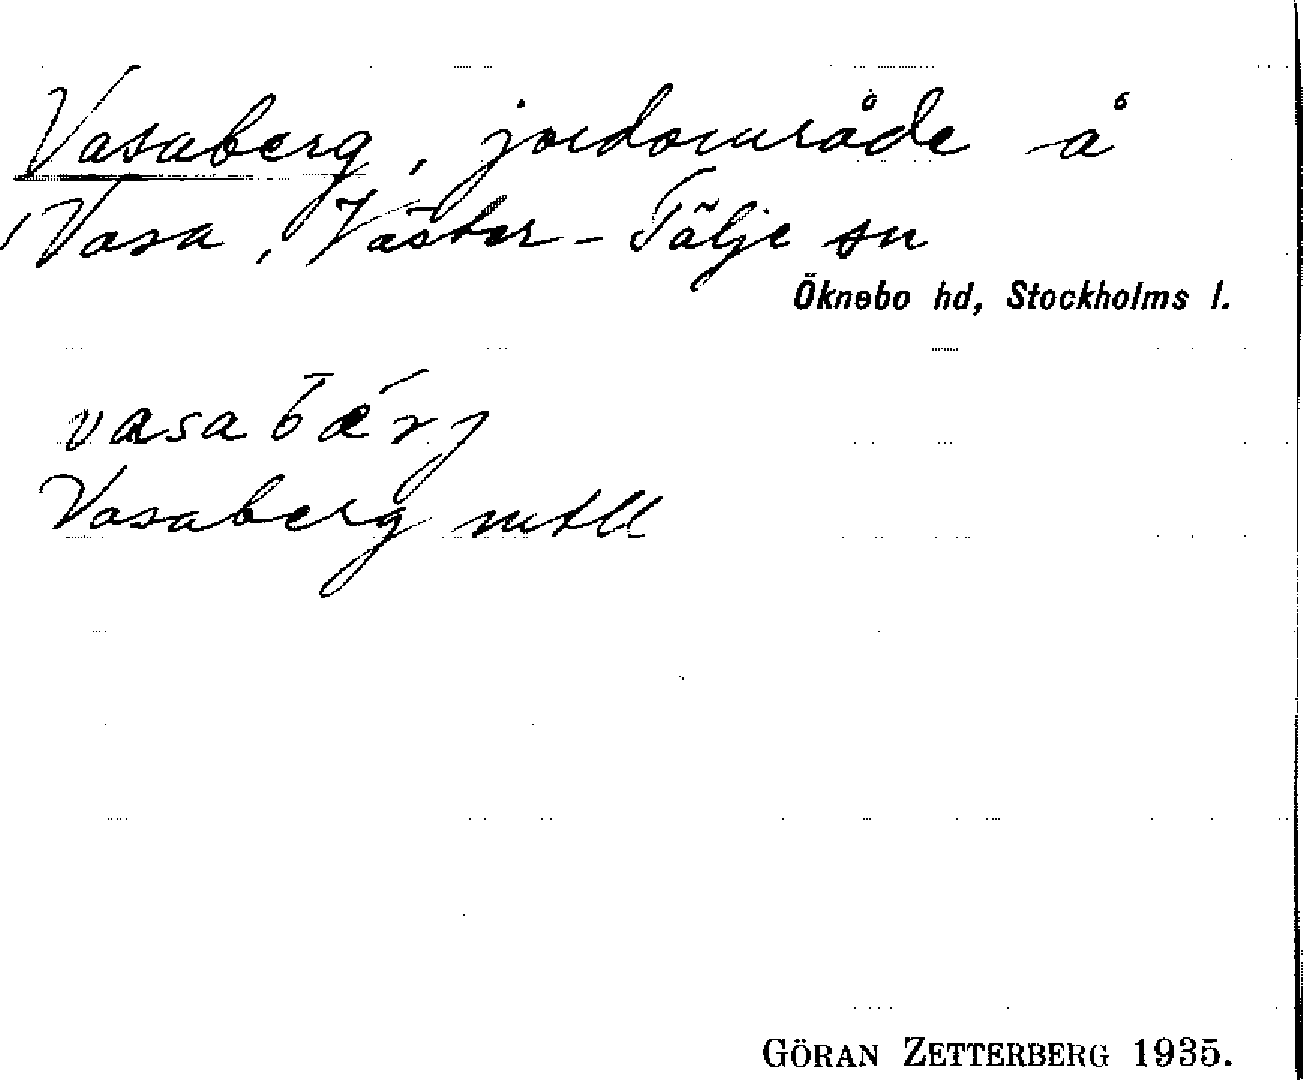 Vasaberg, jordområde å
Vasa, Väster-Tälje sn
Öknebo hd, Stockholms l.
vasabærj
Vasaberg mtll
GÖRAN ZETTERBERG 1935.